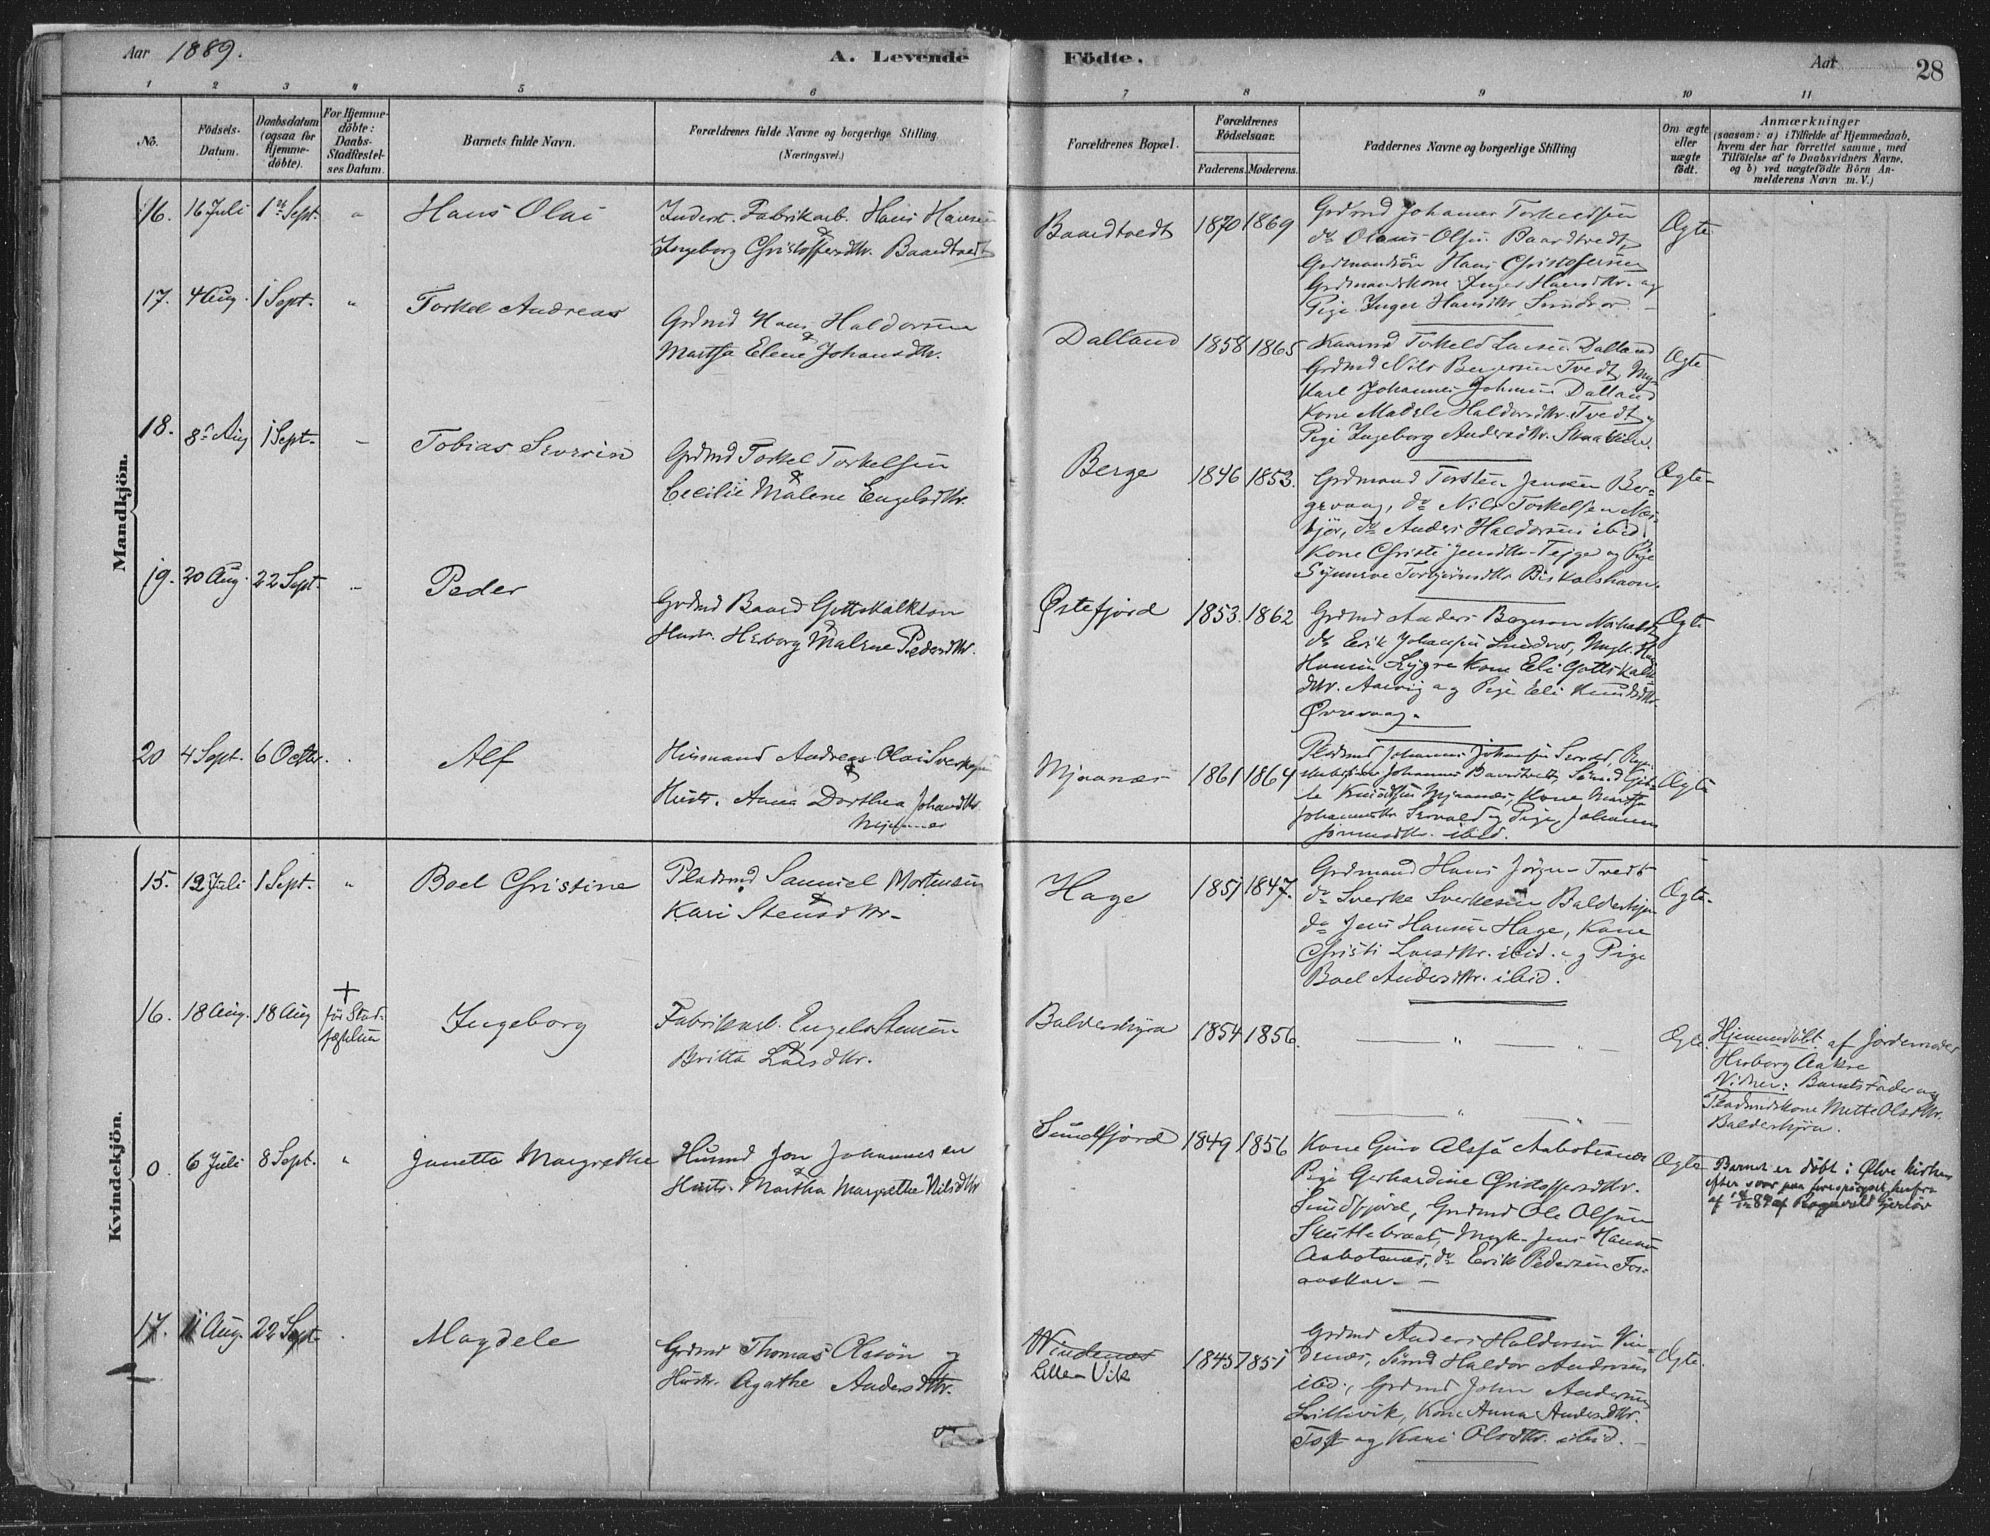 Aar 1889.
A. Levende Födte.
Aar
28
1 2 3 4 5 6 7 8 9 10 11
No.
Födsels-Datum.
Daabsdatum (ogsaa for Hjemmedöbte).
For Hjemmedöbte: Daabs-Stadfæstelses Datum.
Barnets fulde Navn.
Forældrenes fulde Navne og borgerlige Stilling
(Næringsvei.)
Forældrenes Bopæl.
Forældrenes Födselsaar.
Faderens. Moderens.
Faddernes Navne og borgerlige Stilling
Om ægte eller uægte födt.
Anmærkninger
(saasom: a) i Tilfælde af Hjemmedaab, hvem der har forrettet samme, med Tilföielse af to Daabsvidners Navne. og b) ved uægtefödte Börn Anmelderens Navn m. V.)
Mandkjön.
16. 16 Juli 1 Sept. " Hans Olai
Inderst. Fabrikarb. Hans Hansen
& Ingeborg Christoffersdtr. Baardtvedt
Baardtvedt 1870 1869
Grdmd Johannes Torkildsen
do Olaus Olsen Baardtvedt,
Grdmandsön Hans Christofersen
Grdmandskone Inger Hansdtr. og
Pige Inger Hansdtr.
Ægte
17. 4 Aug. 1 Sept. " Torkel Andreas
Grdmd Hans Haldorsen
& Martha Elene Johansdtr.
Dalland 1858 1865
Kaarmd Torkeld Larsen Dalland
Grdmd Nils Tvedt,
Karl Johannes Dalland
Kone Madele Haldorsdtr. Tvedt og
Pige Ingeborg Andersdtr.
Ægte
18. 8 Aug 1 Sept. Tobias Severin
Grdmd Torkel Torkelsen
& Cecilie Malene Engelsdtr.
Berge 1846 1853.
Grdmand Torsten Jensen Ber-
gevaag, do Nils Torkelsen
do Anders Haldorsen ibid.
Kone Christi Jensdtr. og Pige
Synneve Torbjörnsdtr Biskopshavn.
Ægte
19. 20 Aug. 22 Sept. Peder
Grdmd Baard Gottskalkson
& Hustr. Herborg Malene Pedersdtr.
Østefjord 1853. 1862
Grdmd Anders
do Erik Johansen
Hansen Lygre Kone Eli Gottskalks-
dtr. og Pige Eli Knudsdtr.
Øvrevaag.
Ægte
20 4 Sept. 6 Octbr. Alf
Husmand Andreas Olai
& Hustr. Anna Dorthea Johansdtr.
Mjaanes
Mjaanes 1861 1864
Pladsmd Johannes Johansen
Johannes Baardtvedt,
Knudsen Mjaanes, Kone Martha
Johannesdtr. og Pige Johanne
ibid.
Ægte
Kvindekjön.
15. 12 Juli 1 Sept. " Boel Christine
Pladsmd Samuel Mortensen
& Kari Stensdtr.
Hage 1851 1847.
Grdmand Hans Jörgen Tvedt
do Sverke Sverkesen Balderhjem
do Jens Hansen Hage, Kone
Christi Larsdtr. ibid. og Pige
Boel Andersdtr. ibid.
Ægte
16. 18 Aug. 18 Aug + för Stad-
fæstelsen Ingeborg
Fabrikarb. Engel Stensen
& Britta Larsdtr.
Balderhjem 1854 1856.
— " — " —
— " — " —
Ægte.
Hjemmedöbt af Jordemoder
Herborg Aakre
Vidner: Barnets Fader og
Pladsmdskone Mette Olsdtr.
Balderhjem.
0. 6 Juli 8 Sept. " Janetta Margrethe
Husmd Jon Johannesen
& Hustr. Martha Margrethe Nilsdtr
Sundfjord 1849 1856
Kone Guro Aabotsnes
Pige Gerhardine Christoffersdtr.
Sundfjord, Grdmd Ole Olsen
Jens Hansen
Aabotsnes, do Erik Pedersen
Ægte
Barnet er döbt i Ølve kirke
efter svar paa forespörgsel herfra
17. 11 Aug. 22 Sept. Magdele
Grdmd Thomas Olsön og
Hustr. Agathe Andersdtr.
Windenes
Lille Vik 1845 1851
Grdmd Anders Haldorsen Vin-
denes, Haldor Andersen
ibid., Grdmd John Andersen
Lillevik, Kone Anna Andersdtr.
Toft og Kari Olsdtr. ibid.
Ægte.